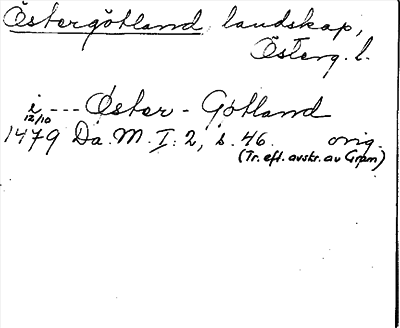 Östergötland, landskap,
Österg. l.
i --- Øster - Götland
12/10
1479 Da. M. I: 2, s. 46. orig.
(Tr. eft. avskr. av Gram)